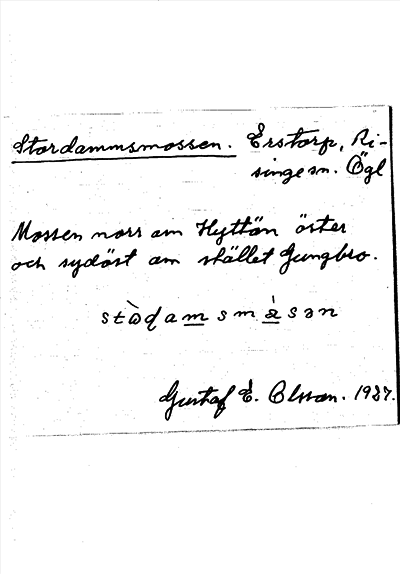 Stordammsmossen. Erstorp, Ri-
singe sn. Ögl
Mossen norr om Hyttön öster
och sydöst om stället Gungbro.
Gustaf E. Olsson. 1937.